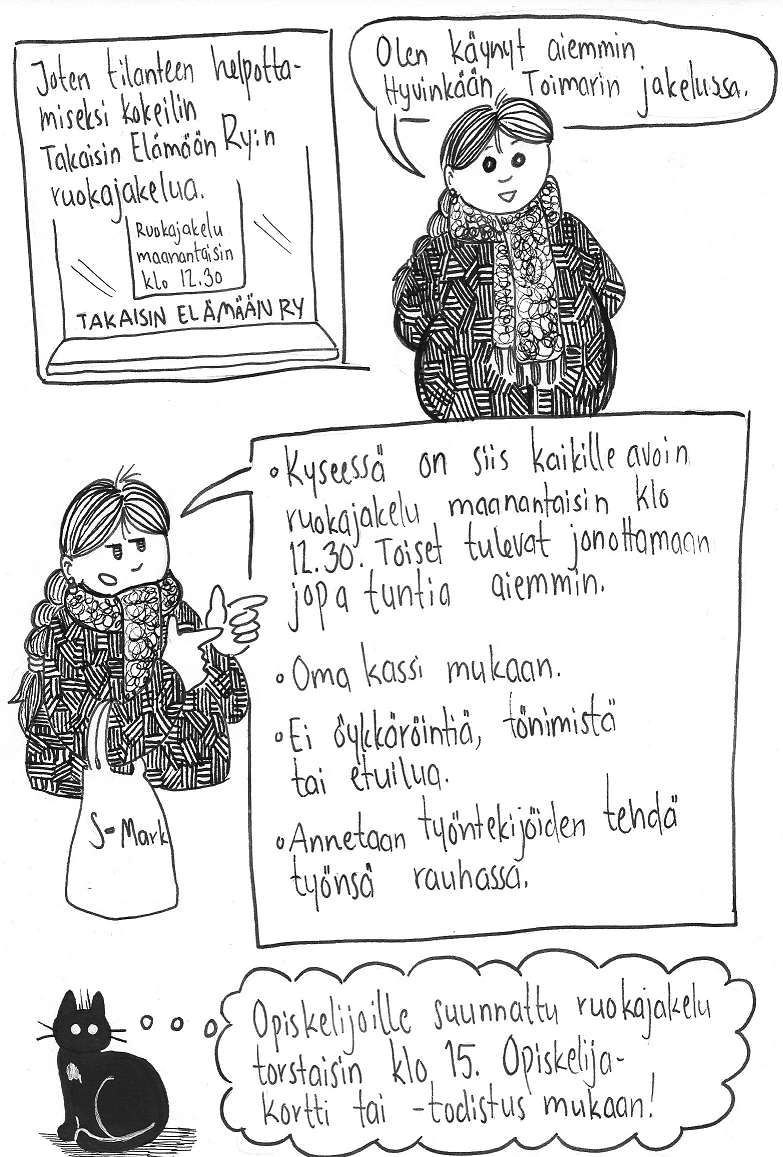 Joten tilanteen helpotta-
miseksi kokeilin
Takaisin Elämään Ry:n
ruokajakelua.
Ruokajakelu
maanantaisin
klo 12.30
TAKAISIN ELÄMÄÄN RY
Olen käynyt aiemmin
Hyvinkään Toimarin jakelussa.
• Kyseessä on siis kaikille avoin
ruokajakelu maanantaisin klo
12.30. Toiset tulevat jonottamaan
jopa tuntia aiemmin.
• Oma kassi mukaan.
• Ei öykkäröintiä, tönimistä
tai etuilua.
• Annetaan työntekijöiden tehdä
työnsä rauhassa.
S-Mark
Opiskelijoille suunnattu ruokajakelu
torstaisin klo 15. Opiskelija-
kortti tai -todistus mukaan!